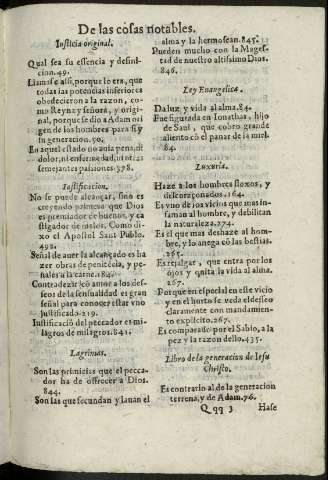 De las cosas notables.
Iusticia original.
Qual sea su essencia y defini-
cion.49.
Llamose assi, porque lo era, que
todas las potencias inferiores
obedecieron a la razon, co-
mo Reyna y señora, y origi-
nal, porque se dio a Adam ori
gen de los hombres para si y
su generacion.50.
En aquel estado no auia pena, ni
dolor, ni enfermedad, ni otras
semejantes passiones.378.
Iustificacion.
No se puede alcançar, sino es
creyendo primero que Dios
es premiador de buenos, y ca
stigador de malos. Como di-
xo el Apostol Sant Pablo.
492.
Señal de auer la alcançado es ha
zer obras de penitẽcia, y pe-
nales a la carne.184.
Contradezir cõ amor a los des-
seos de la sensualidad es gran
señal para conocer estar vno
justificado.219.
Iustificaciõ del peccador es mi-
lagros de milagros.841.
Lagrimas.
Son las primicias que el pecca-
dor ha de offrecer a Dios.
844.
Son las que fecundan y lauan el
alma y la hermosean.845.
Pueden mucho con la Mages-
tad de nuestro altissimo Dios.
846.
Ley Euangelica.
Da luz y vida al alma.84.
Fue figurada en Ionathas, hijo
de Saul, que cobro grande
aliento cõ el panar de la miel.
84.
Luxuria.
Haze a los hombres floxos, y
descorazonados.164.
Es vno de los vicios que mas in-
faman al hombre, y debilitan
la naturaleza.274.
Es el que mas deshaze al hom-
bre, y lo anega cõ las bestias.
265.
Es rejalgar, que entra por los
ojos y quita la vida al alma.
267.
Porque en especial en este vicio
y en el hurto se veda el desseo
claramente con mandamien-
to explicito.267.
Es comparado por el Sabio, a la
pez y la razon dello.435.
Libro de la generacion de Iesu
Christo.
Es contrario al de la generacion
terrena, y de Adam.76.
Qqq 3 Hase